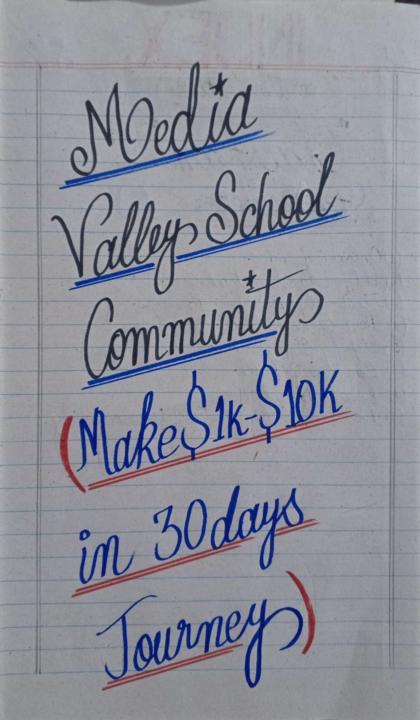 Media
Valley School
Community
(Make $1K-$10K
in 30days
Journey)